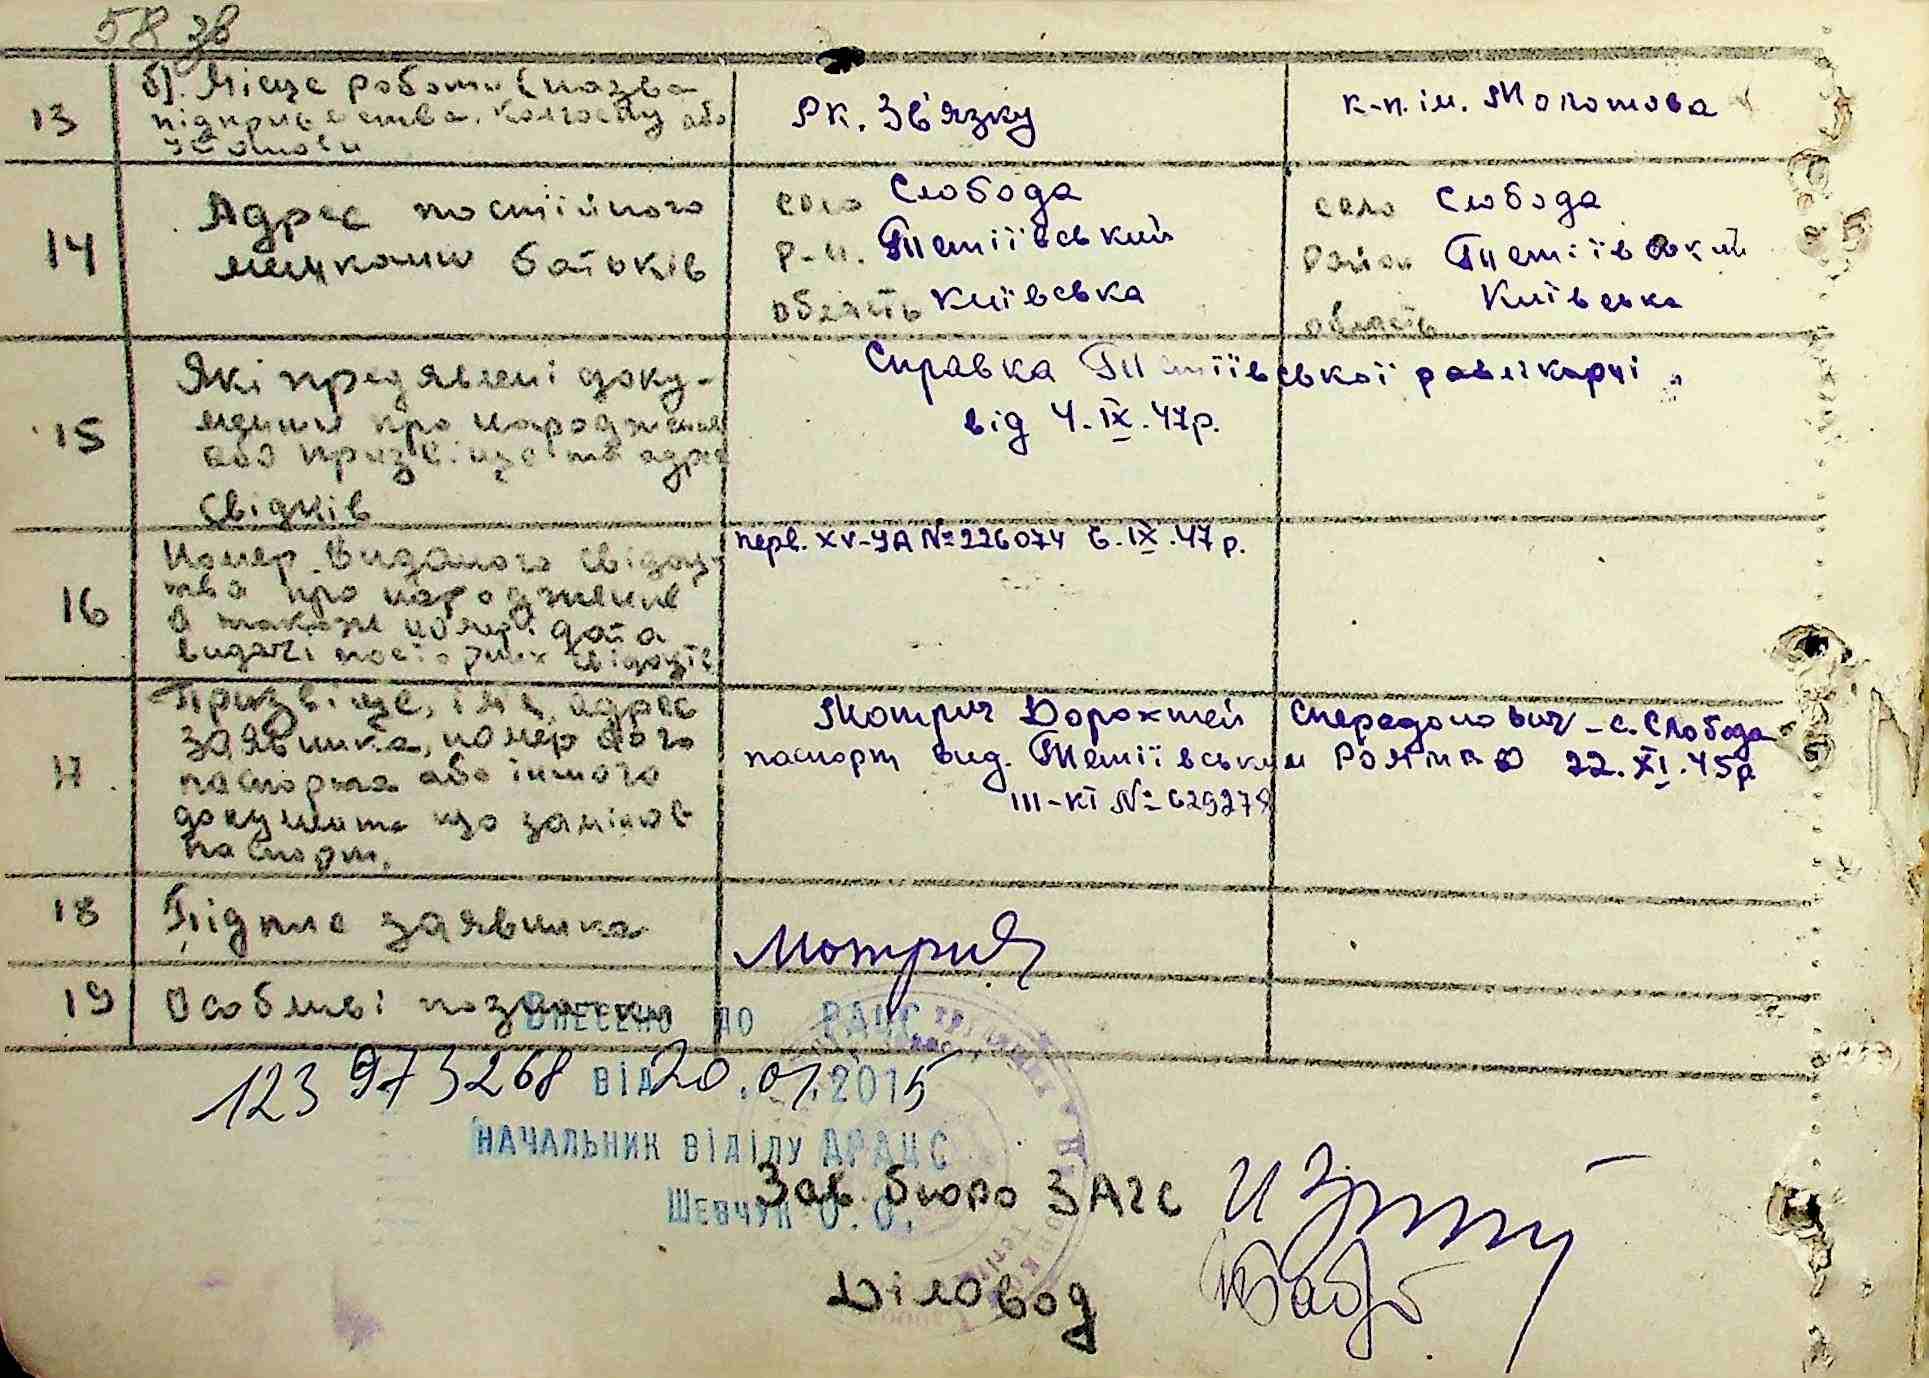 58 зв
13
б). Місце роботи (назва
підприємства, колгоспу або
установи
Рк. Зв'язку
к-п. ім. Молотова
14
Адрес постійного
мешкання батьків
село Слобода
р-н. Тетіївський
область Київська
село Слобода
район Тетіївський
Київська
область
15
Які предявлені доку-
менти про народження
або призвіще та адрес
свідків
Справка Тетіївської равлікарні
від 4.IX.47р.
16
Номер виданого свідоц-
тва про народження
а також номер і дата
видачі повторних свідоцтв
перв. XV-УА №226074 6.IX.47р.
17
Призвіще, імя, адрес
заявника, номер його
паспорта або іншого
документа що заміняє
паспорт.
Мотрич Дорохтей Спередонович - с. Слобода
паспорт вид. Тетіївським РОМВД 22.XI.45р
III-КТ №629278
18
Підпис заявника
Мотрич
19
Особливі позначки
ВНЕСЕНО ДО РАЦС
123 973268 ВІД 20.01.2015
НАЧАЛЬНИК ВІДІЛУ ДРАЦС
ШЕВЧУК О.О.
Зав. бюро ЗАГС
Діловод